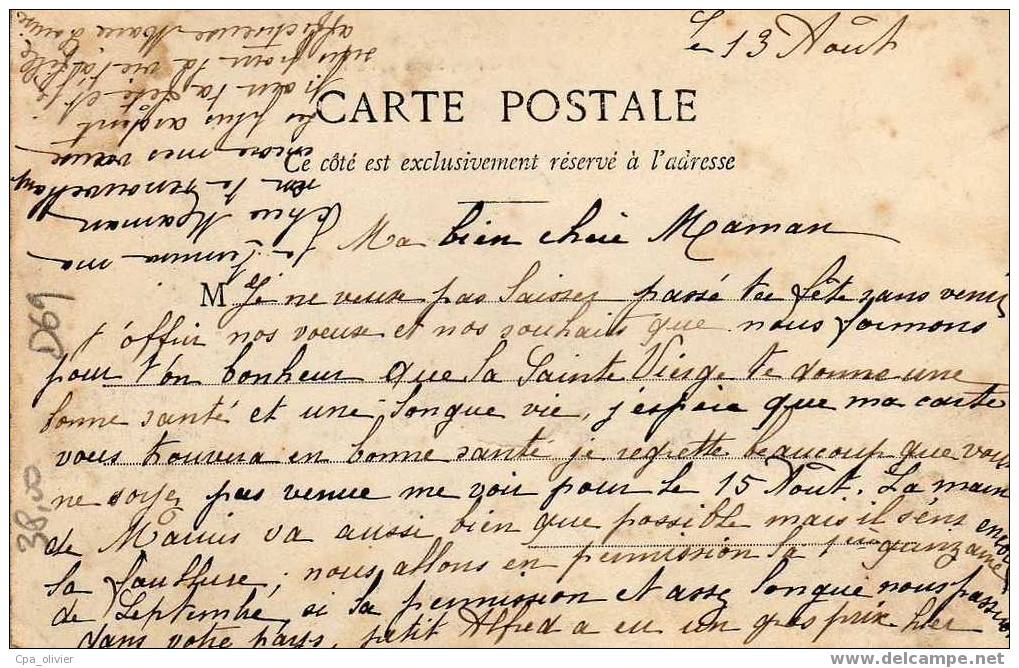 Le 13 Août
CARTE POSTALE
Ce côté est exclusivement réservé à l'adresse
Ma bien chère Maman
M Je ne veuse pas laisser passé ta fête sans venir
t'offrir nos voeuse et nos souhaits que nous formons
pour t'on bonheur que la Sainte Vierge te donne une
bonne santé et une longue vie, j'espère que ma carte
vous trouvera en bonne santé je regrette beaucoup que vous
ne soyez pas venue me voir pour le 15 Août. La main
de Marius va aussi bien que possible mais il s'ent encore
la foulture; nous allons en permission la 1ere quanzaine
de Septembre, si la permission et assez longue nous passerons
dans votre pays, petit Alfred a eu un gros prix hier
ma
chère Maman
renouvellant
encore mes voeuse
les plus ardent
pour ta fête et je
suis pour la vie ta fille
affectueuse Marie Louise
D69
38,00
Cpa_olivier
http://www.delcampe.net